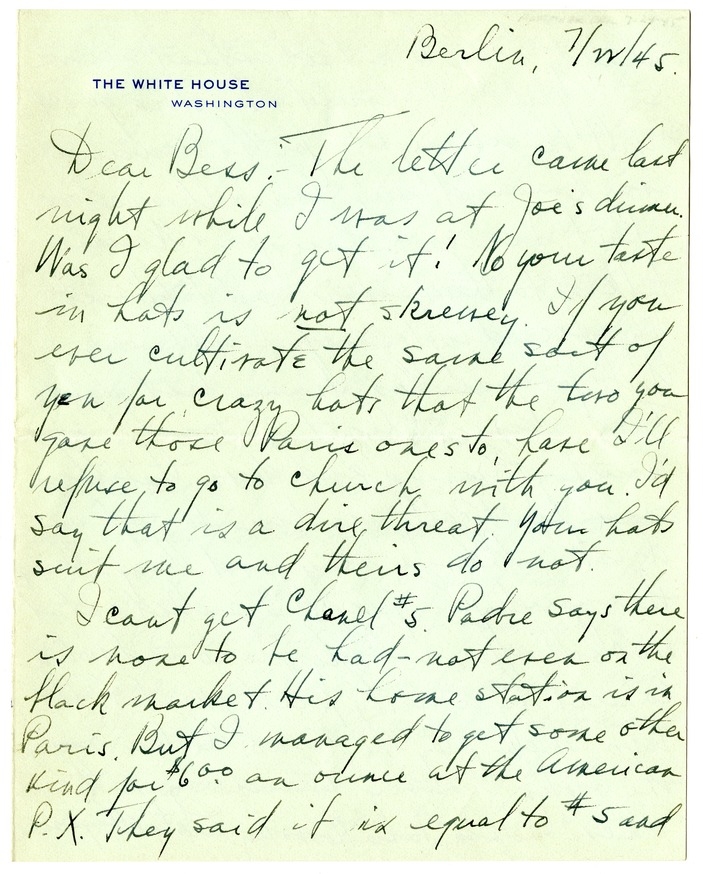 Berlin, 7/22/45.
THE WHITE HOUSE
WASHINGTON
Dear Bess:- The letter came last
night while I was at Joe's dinner.
Was I glad to get it! No your taste
in hats is not skrewey. If you
ever cultivate the same sort of
yen for crazy hats that the two you
gave those Paris ones to, have I'll
refuse to go to church with you. I'd
say that is a dire threat. Your hats
suit me and theirs do not.
I cant get Chanel #5. Padre says there
is none to be had-not even on the
black market. His home station is in
Paris. But I managed to get some other
kind for $6.00 an ounce at the American
P.X. They said it is equal to #5 and